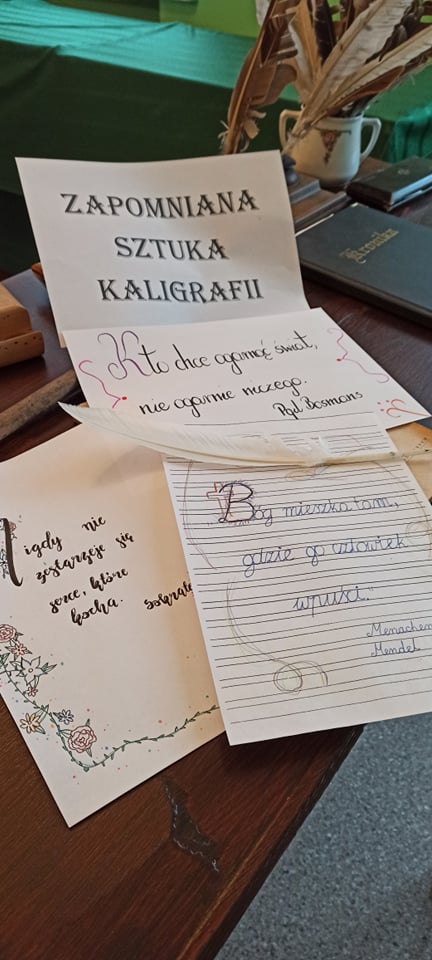 ZAPOMNIANA
SZTUKA
KALIGRAFII
Kronika
Kto chce ogarnąć świat,
nie ogarnie niczego.
Phil Bosmans
Nigdy nie
zestarzeje się
serce, które
kocha.
Sokrates
Bóg mieszka tam,
gdzie go człowiek
wpuści."
Menachem
Mendel